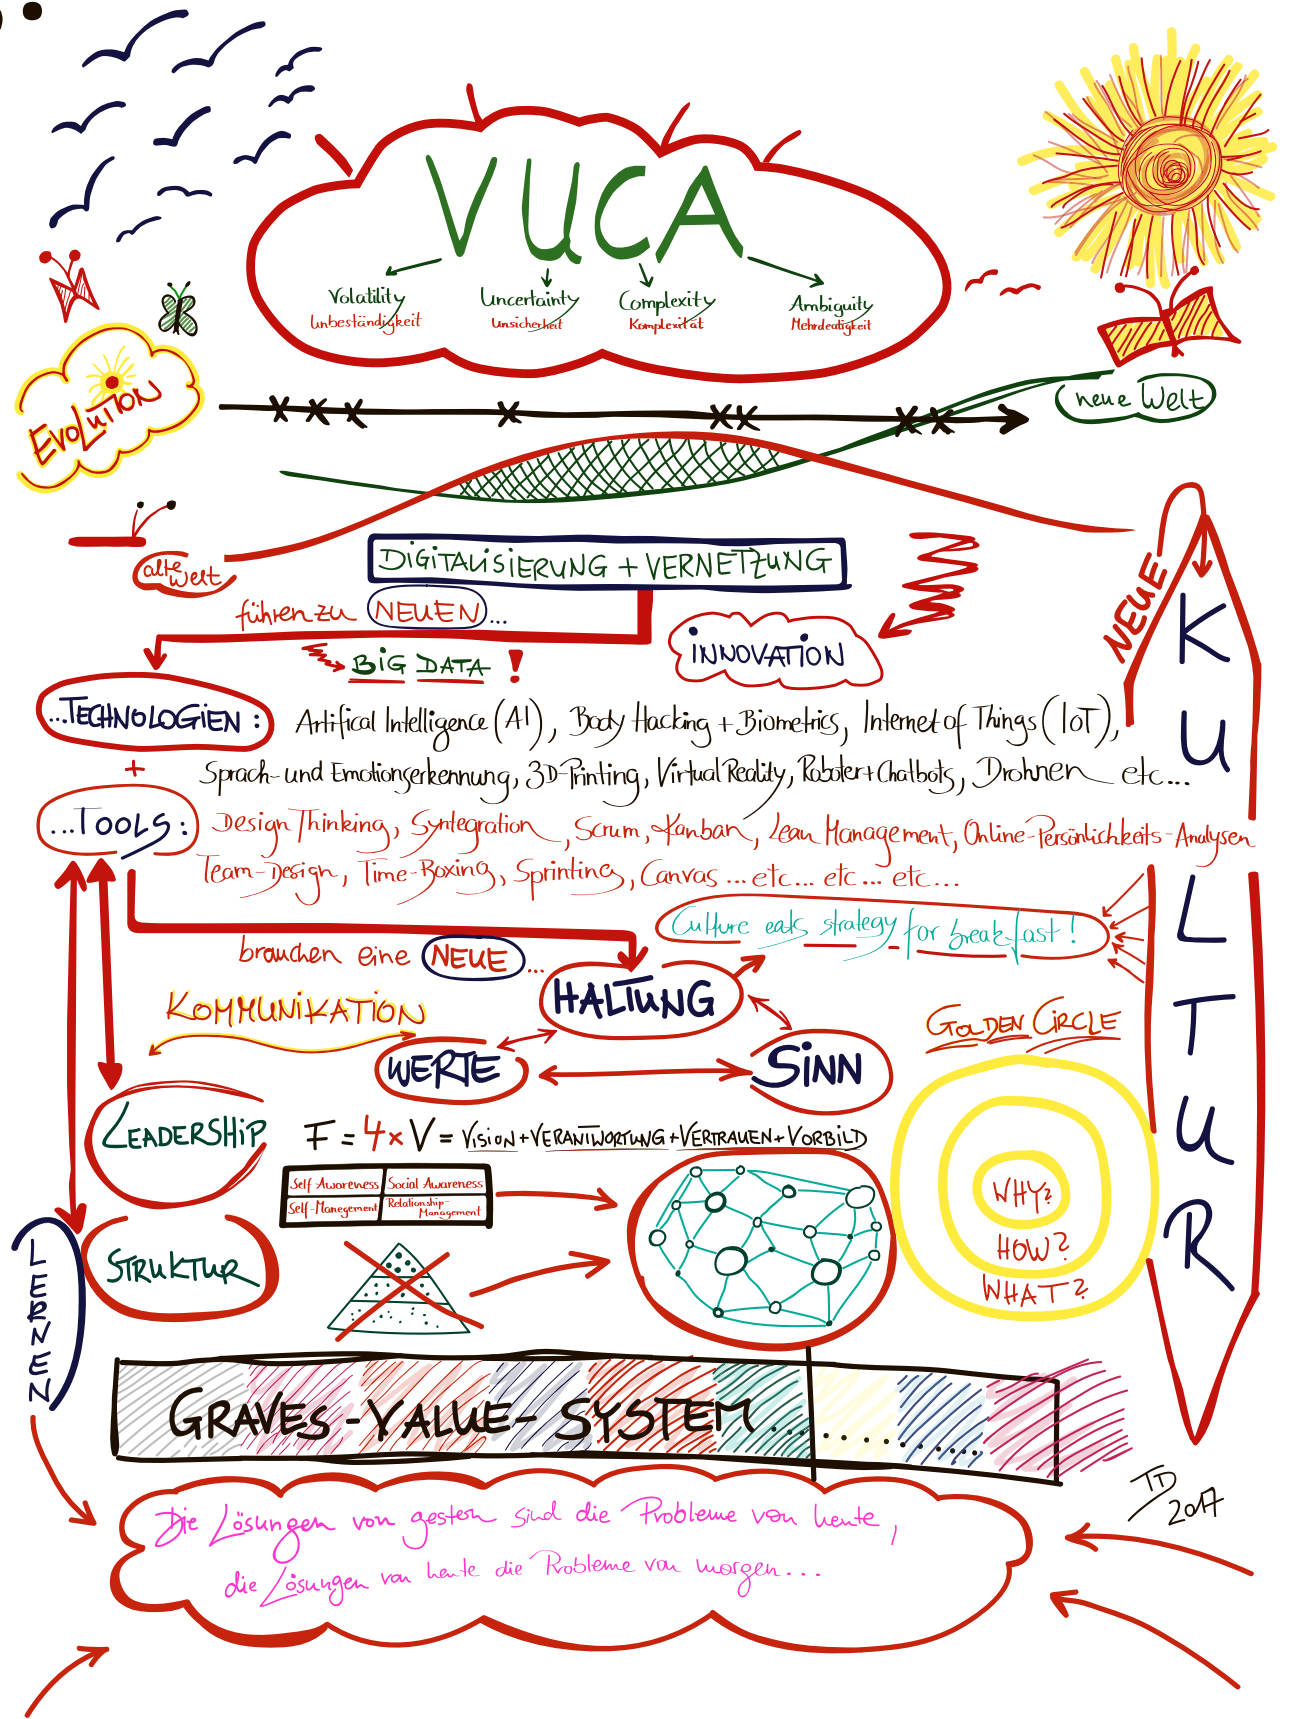 VUCA
Volatility Uncertainty Complexity Ambiguity
Unbeständigkeit Unsicherheit Komplexität Mehrdeutigkeit
EVOLUTION
neue Welt
alte Welt
DIGITALISIERUNG + VERNETZUNG
führen zu NEUEN ...
BIG DATA !
INNOVATION
NEUE
KULTUR
...TECHNOLOGIEN: Artifical Intelligence (AI), Body Hacking + Biometrics, Internet of Things (IoT),
Sprach- und Emotionserkennung, 3D-Printing, Virtual Reality, Roboter + Chatbots, Drohnen etc...
+
...TOOLS: Design Thinking, Syntegration, Scrum, Kanban, Lean Management, Online-Persönlichkeits-Analysen
Team-Design, Time-Boxing, Sprinting, Canvas ... etc ... etc ... etc ...
Culture eats strategy for breakfast!
brauchen eine NEUE ...
HALTUNG
KOMMUNIKATION
WERTE
SINN
GOLDEN CIRCLE
WHY?
HOW?
WHAT?
LEADERSHIP
F = 4 x V = VISION + VERANTWORTUNG + VERTRAUEN + VORBILD
Self-Awareness Social Awareness
Self-Manegement Relationship-Management
STRUKTUR
LERNEN
GRAVES-VALUE-SYSTEM ..............
Die Lösungen von gestern sind die Probleme von heute,
die Lösungen von heute die Probleme von morgen...
TD
2017